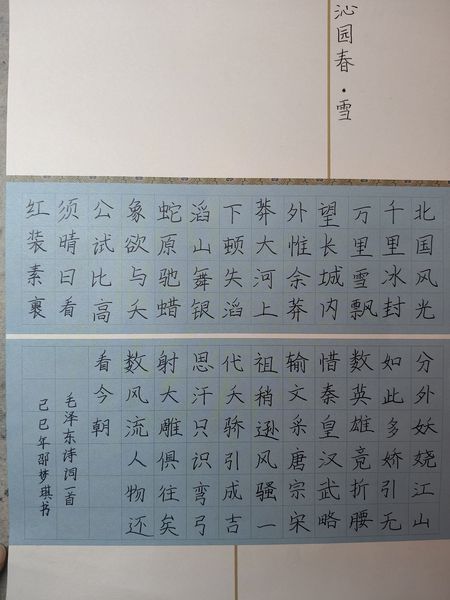 沁园春·雪
北国风光
千里冰封
万里雪飘
望长城内
外惟余莽
莽大河上
下顿失滔
滔山舞银
蛇原驰蜡
象欲与天
公试比高
须晴日看
红装素裹
分外妖娆江山
如此多娇引无
数英雄竞折腰
惜秦皇汉武略
输文采唐宗宋
祖稍逊风骚一
代天骄引成吉
思汗只识弯弓
射大雕俱往矣
数风流人物还
看今朝
毛泽东诗词一首
己巳年邵梦琪书